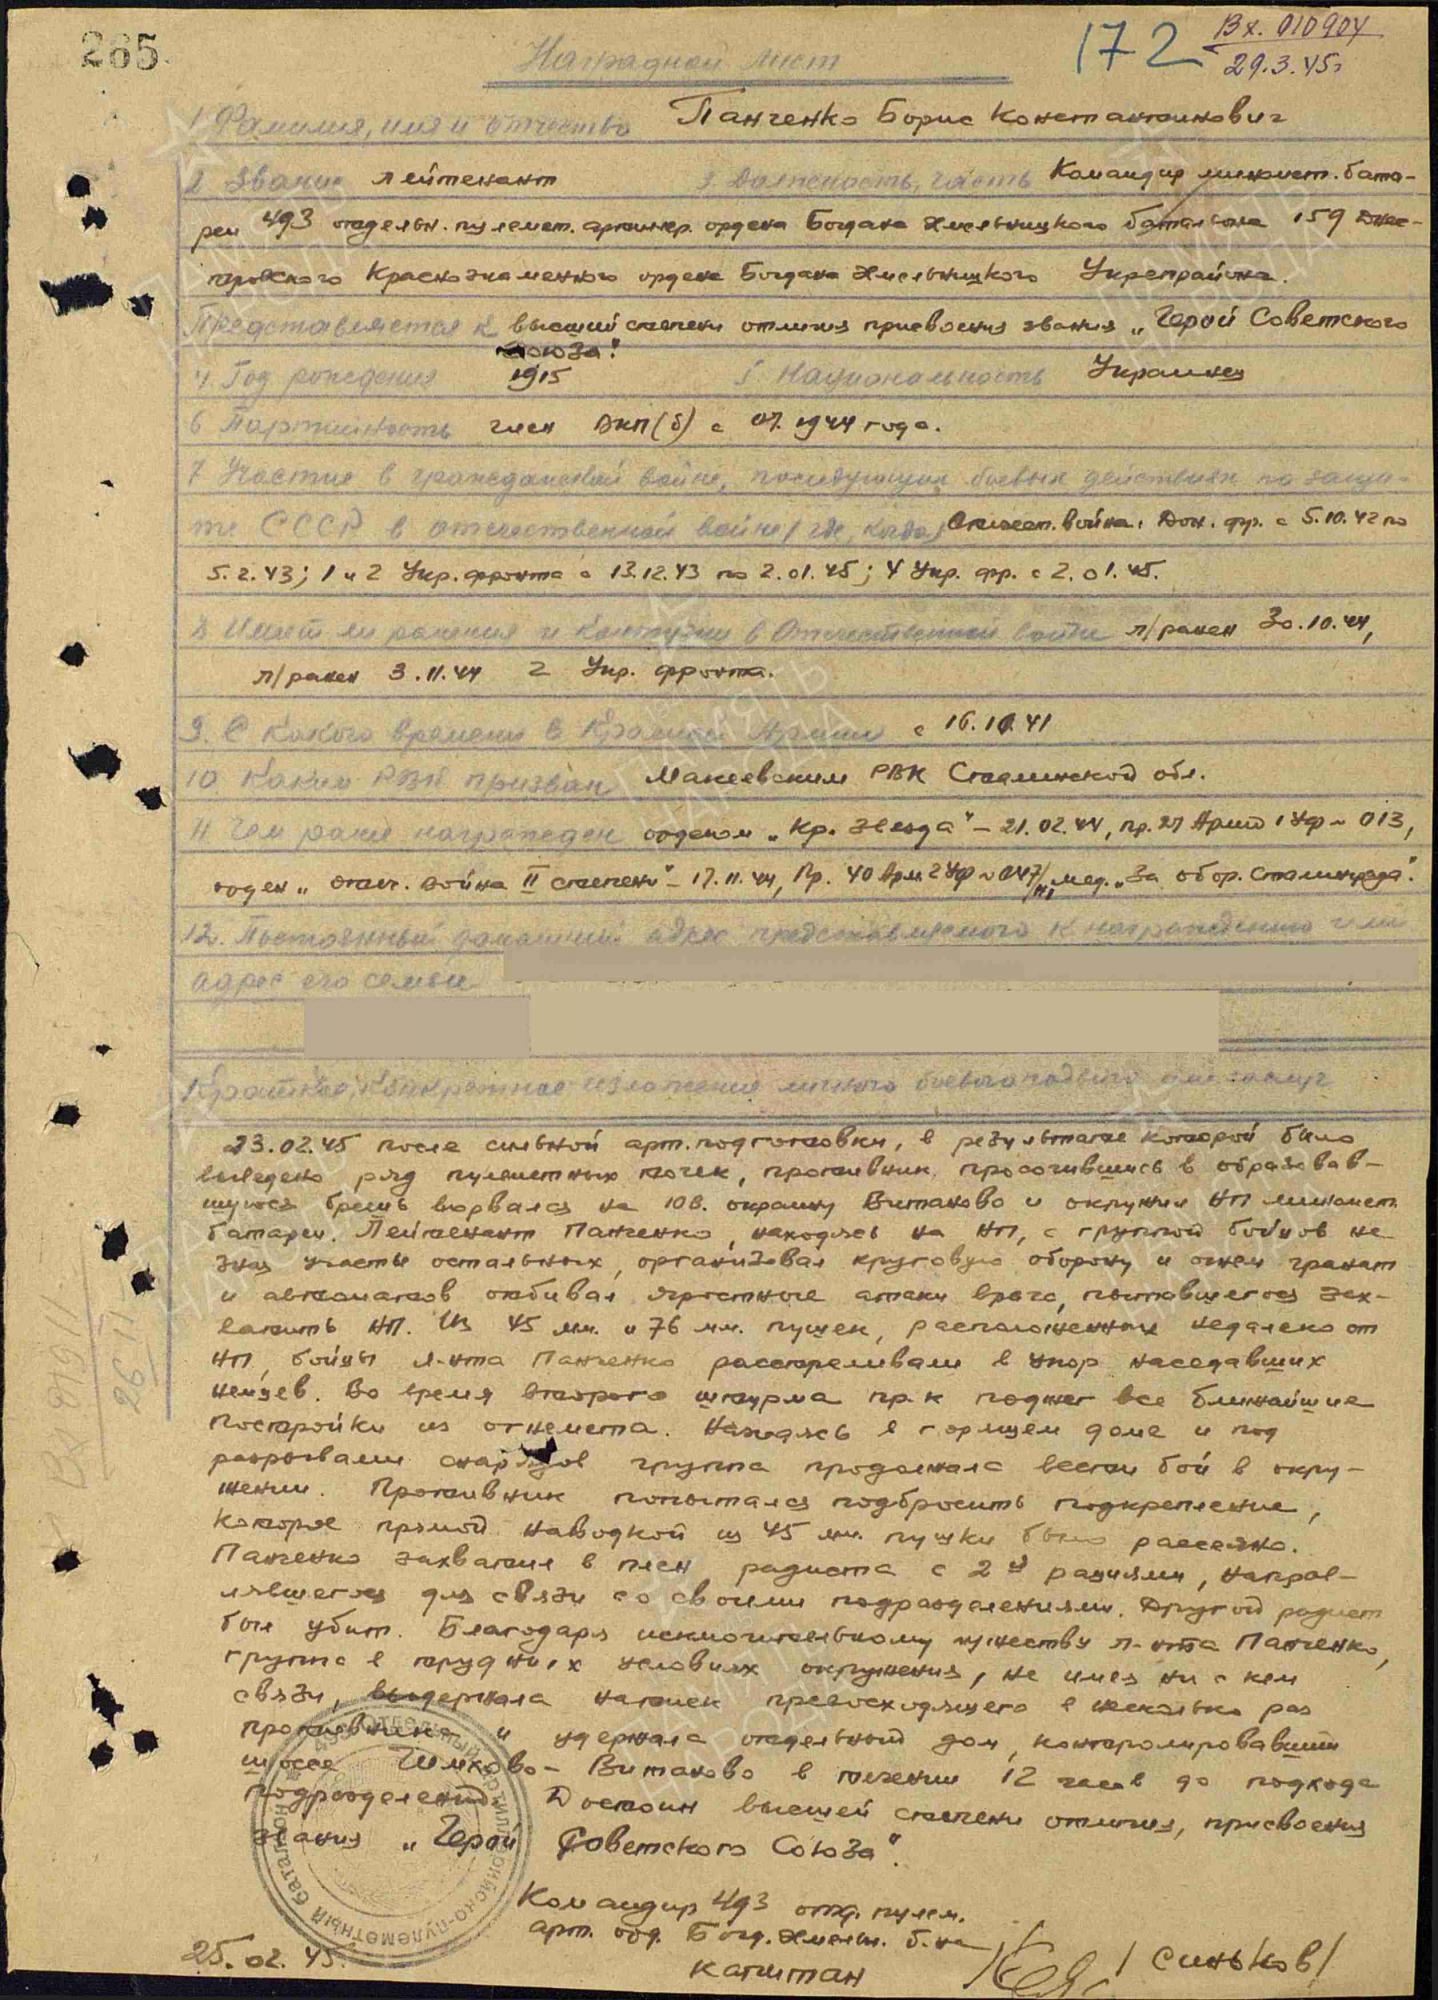 265
172
Вх. 010904
29.3.45г
Наградной лист
1 Фамилия, имя и отчество Панченко Борис Константинович
2 Звание лейтенант 3. Должность, часть Командир миномет. бата-
реи 493 отдельн. пулемет. артилер. ордена Богдана Хмельницкого батальона 159 Днес-
тровского Краснознаменного ордена Богдана Хмельницкого Укрепрайона.
Представляется к высшей степени отличия присвоения звания „Герой Советского
Союза".
4. Год рождения 1915 5 Национальность Украинец
6 Партийность член ВКП(б) с 07.1944 года.
7 Участие в гражданской войне, последующих боевых действиях по защи-
те СССР в отечественной войне (где, когда) Отечест. война. Дон. фр. с 5.10.42 по
5.2.43; 1 и 2 Укр. фронта с 13.12.43 по 2.01.45; 4 Укр. фр. с 2.01.45.
8 Имеет ли ранения и контузии в Отечественной войне л/ранен 30.10.44,
л/ранен 3.11.44 2 Укр. фронта.
9. С какого времени в Красной Армии с 16.10.41
10 Каким РВК призван Макеевским РВК Сталинской обл.
11 Чем ранее награжден орденом „Кр. Звезда" – 21.02.44, пр. 27 Армии 1 Уф № 013,
орден „Отеч. война II степени" – 17.11.44, Пр. 40 Арм 2 Уф № 047/н, мед. „За обор. Сталинграда".
12. Постоянный домашний адрес представляемого к награждению и
адрес его семьи
Краткое, конкретное изложение личного боевого подвига или заслуг
23.02.45 после сильной арт. подготовки, в результате которой было
выведено ряд пулеметных точек, противник, просочившись в образовав-
шуюся брешь ворвался на юв. окраину Витаново и окружил НП миномет.
батареи. Лейтенант Панченко, находясь на НП, с группой бойцов не
зная участи остальных, организовал круговую оборону и огнем гранат
и автоматов отбивал яростные атаки врага, пытавшегося зах-
ватить НП. Из 45 мм. и 76 мм. пушек, расположенных недалеко от
НП, бойцы л-нта Панченко расстреливали в упор наседавших
немцев. Во время второго штурма пр-к поджег все ближайшие
постройки из огнемета. Находясь в горящем доме и под
разрывами снарядов группа продолжала вести бой в окру-
жении. Противник попытался подбросить подкрепление,
которое прямой наводкой из 45 мм. пушки было рассеяно.
Панченко захватил в плен радиста с 2й рациями, направ-
лявшегося для связи со своими подразделениями. Другой радист
был убит. Благодаря исключительному мужеству л-нта Панченко,
группа в трудных условиях окружения, не имея ни с кем
связи, выдержала натиск превосходящего в несколько раз
противника и удержала отдельный дом, контролировавший
шоссе Чимхово – Витаново в течении 12 часов до подхода
подразделений. Достоин высшей степени отличия, присвоения
звания „Герой Советского Союза".
Командир 493 отд. пулем.
арт. орд. Богд. Хмельн. б-на
капитан /Синьков/
25.02.45.